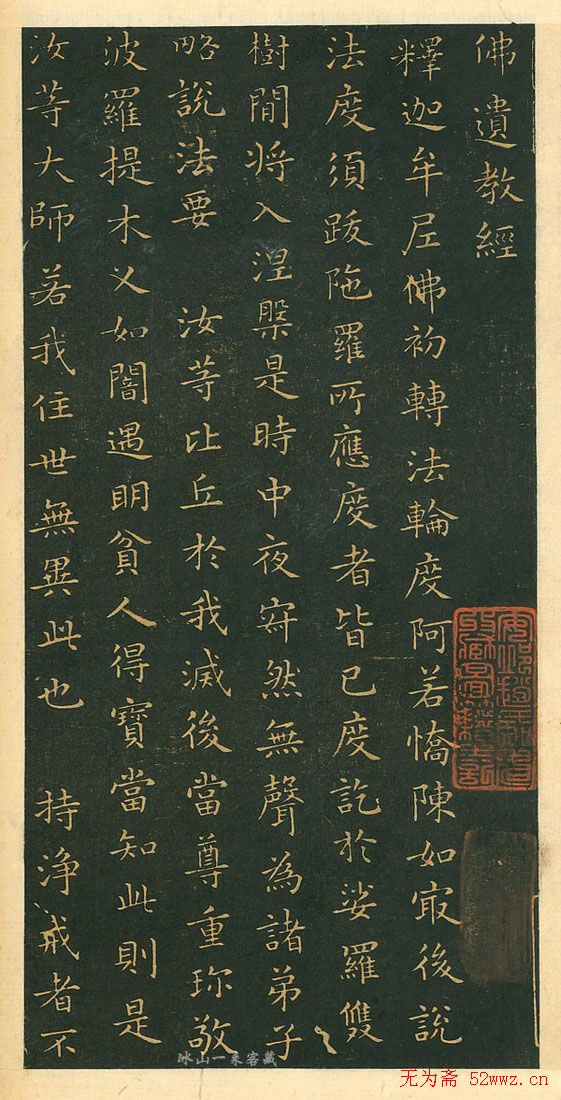 佛遺教經
釋迦牟尼佛初轉法輪度阿若憍陳如㝡後說
法度須跋陁羅所應度者皆已度訖於娑羅雙
樹間将入涅槃是時中夜寂然無聲為諸弟子
略說法要 汝等比丘於我滅後當尊重珎敬
波羅提木叉如闇遇明貧人得寶當知此則是
汝等大師若我住世無異此也 持浄戒者不
冰山一來客藏
无为斋 52wwz.cn